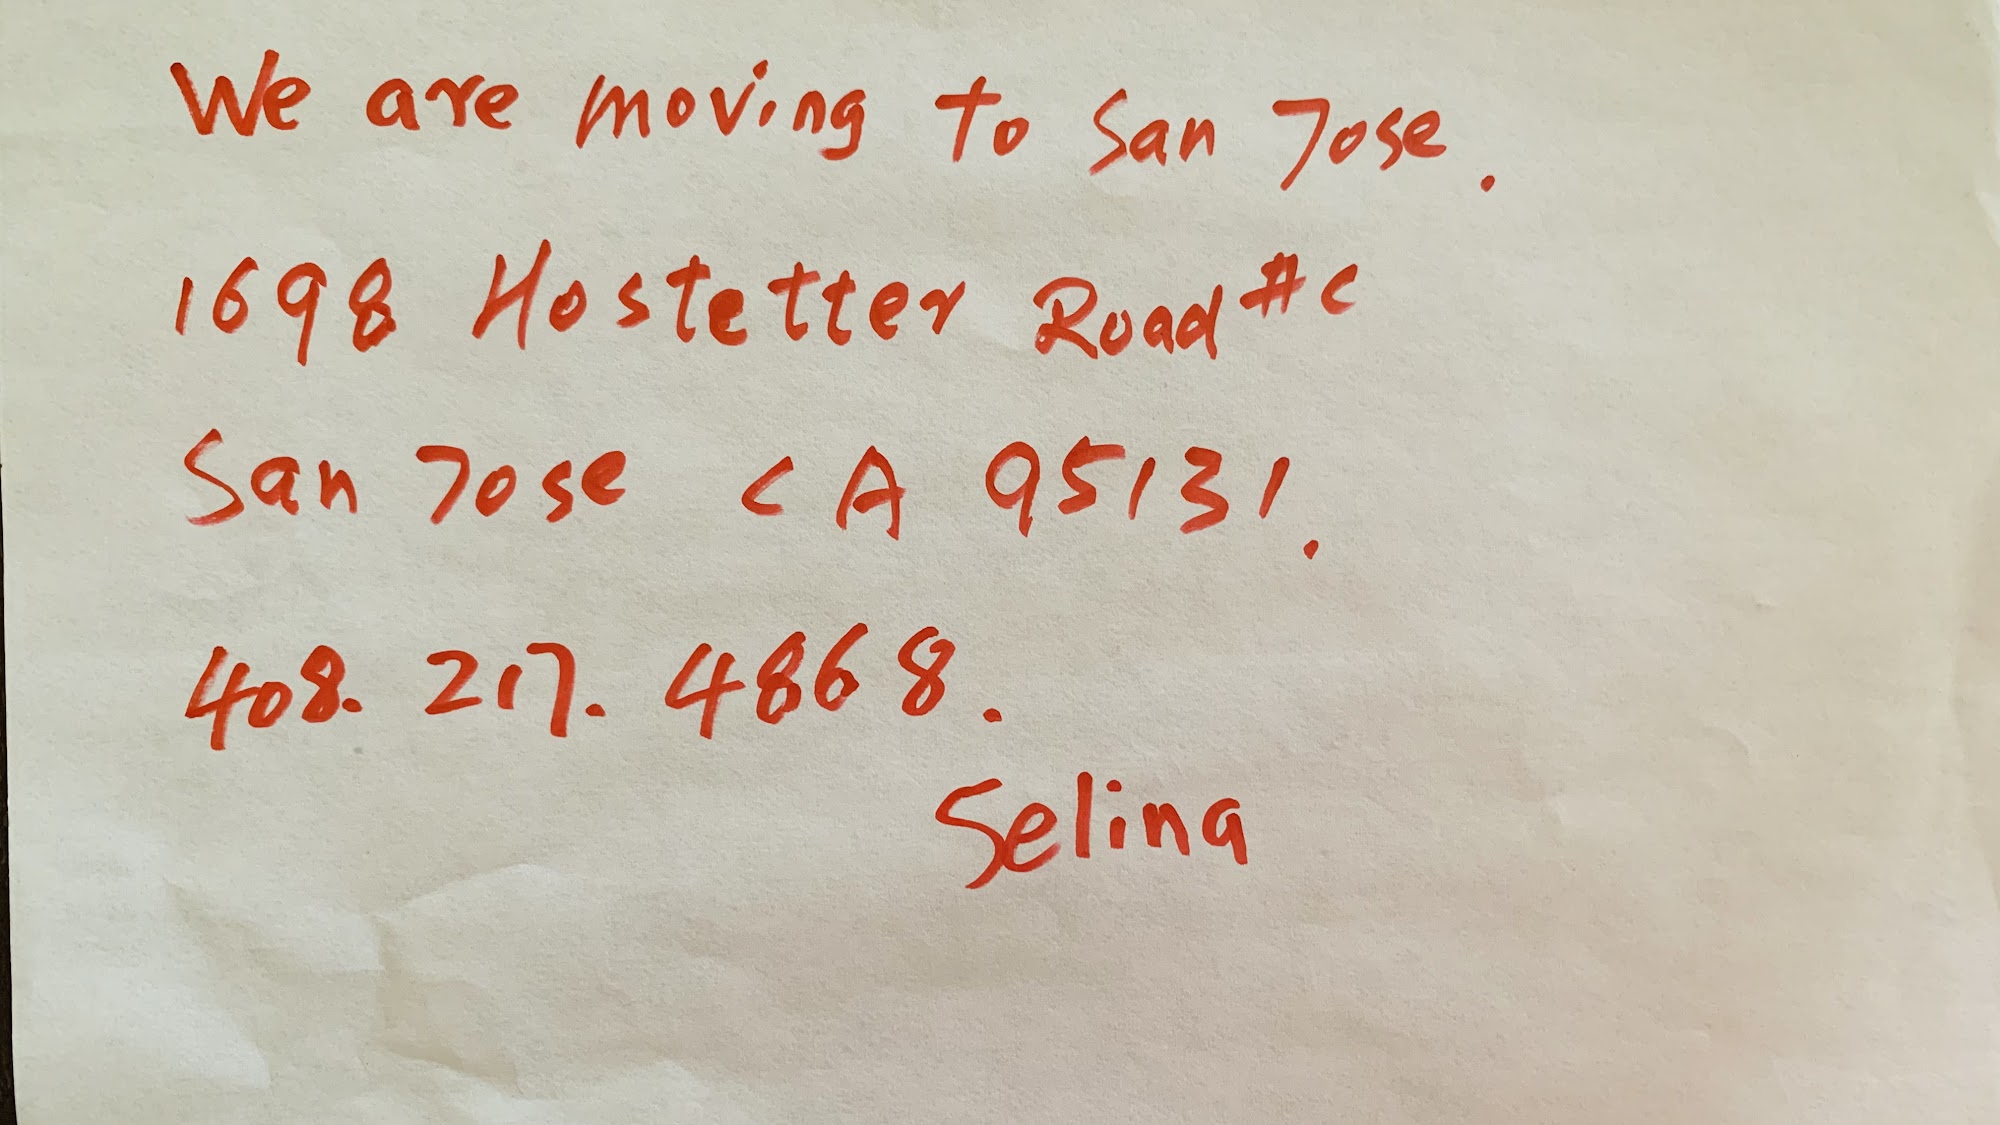 We are moving to San Jose.
1698 Hostetter Road #C
San Jose CA 95131.
408. 217. 4868.
Selina